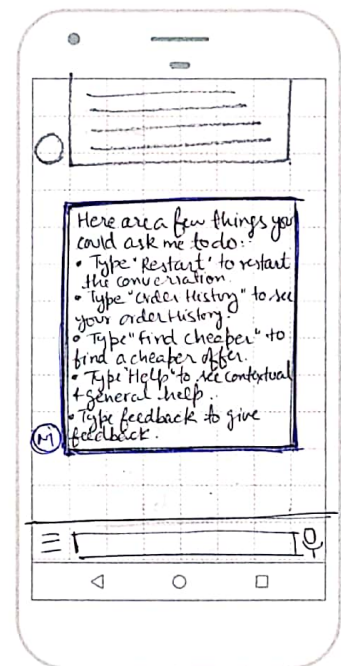 Here are a few things you
could ask me to do:
• Type 'Restart' to restart
the conversation.
• Type "Order History" to see
your order History.
• Type "find cheaper" to
find a cheaper offer.
• Type "Help" to see contextual
+ general help.
• Type feedback to give
feedback.